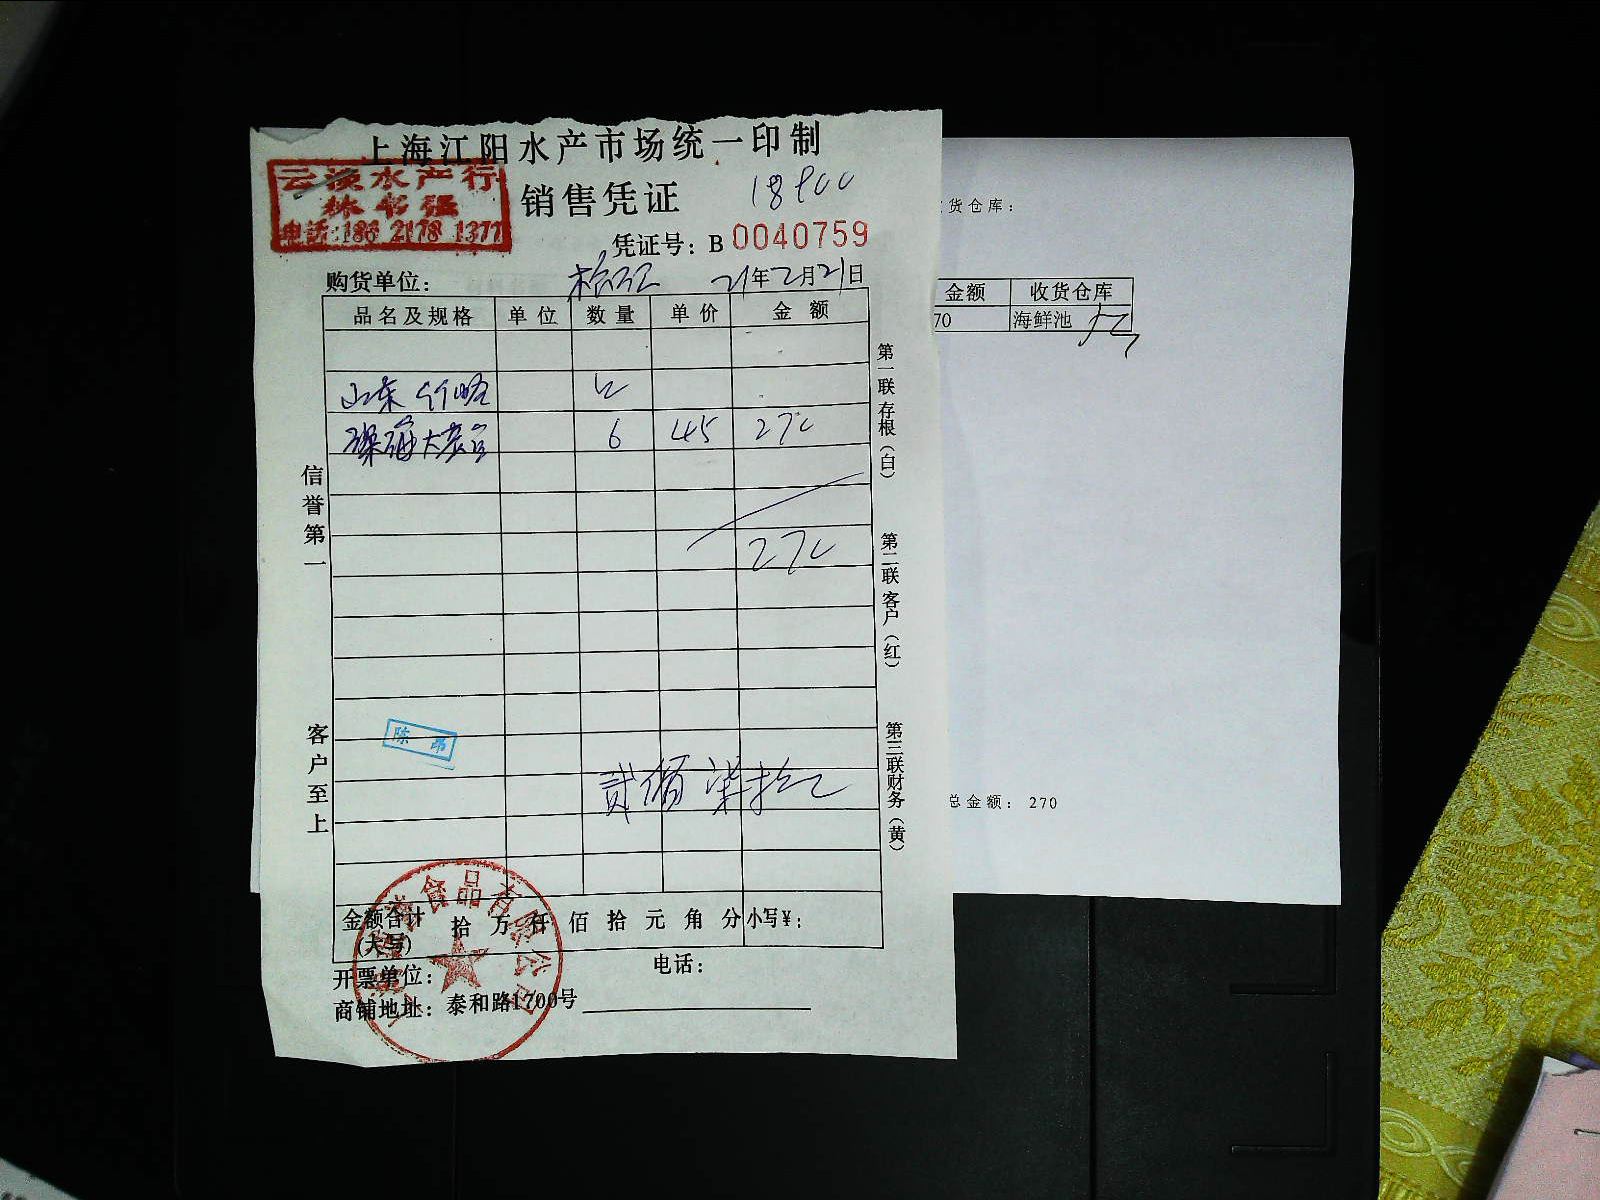 上海江阳水产市场统一印制
云渼水产行
林书强
电话:186 2178 1377
销售凭证
凭证号: B 0040759
购货单位:
21年2月21日
品名及规格 单位 数量 单价 金额
山东
6 45 270
270
贰佰柒拾元
陈 昂
金额合计(大写) 拾 万 仟 佰 拾 元 角 分 小写¥:
开票单位: 电话:
商铺地址: 泰和路1700号
信誉第一
客户至上
第一联存根(白)
第二联客户(红)
第三联财务(黄)
食品有限公司
货仓库:
金额 收货仓库
70 海鲜池
总金额: 270